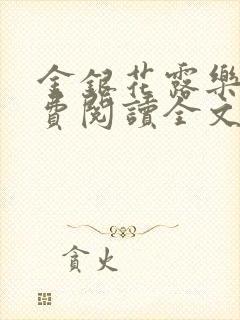 金銀花露樂
費閱讀全文
貪火